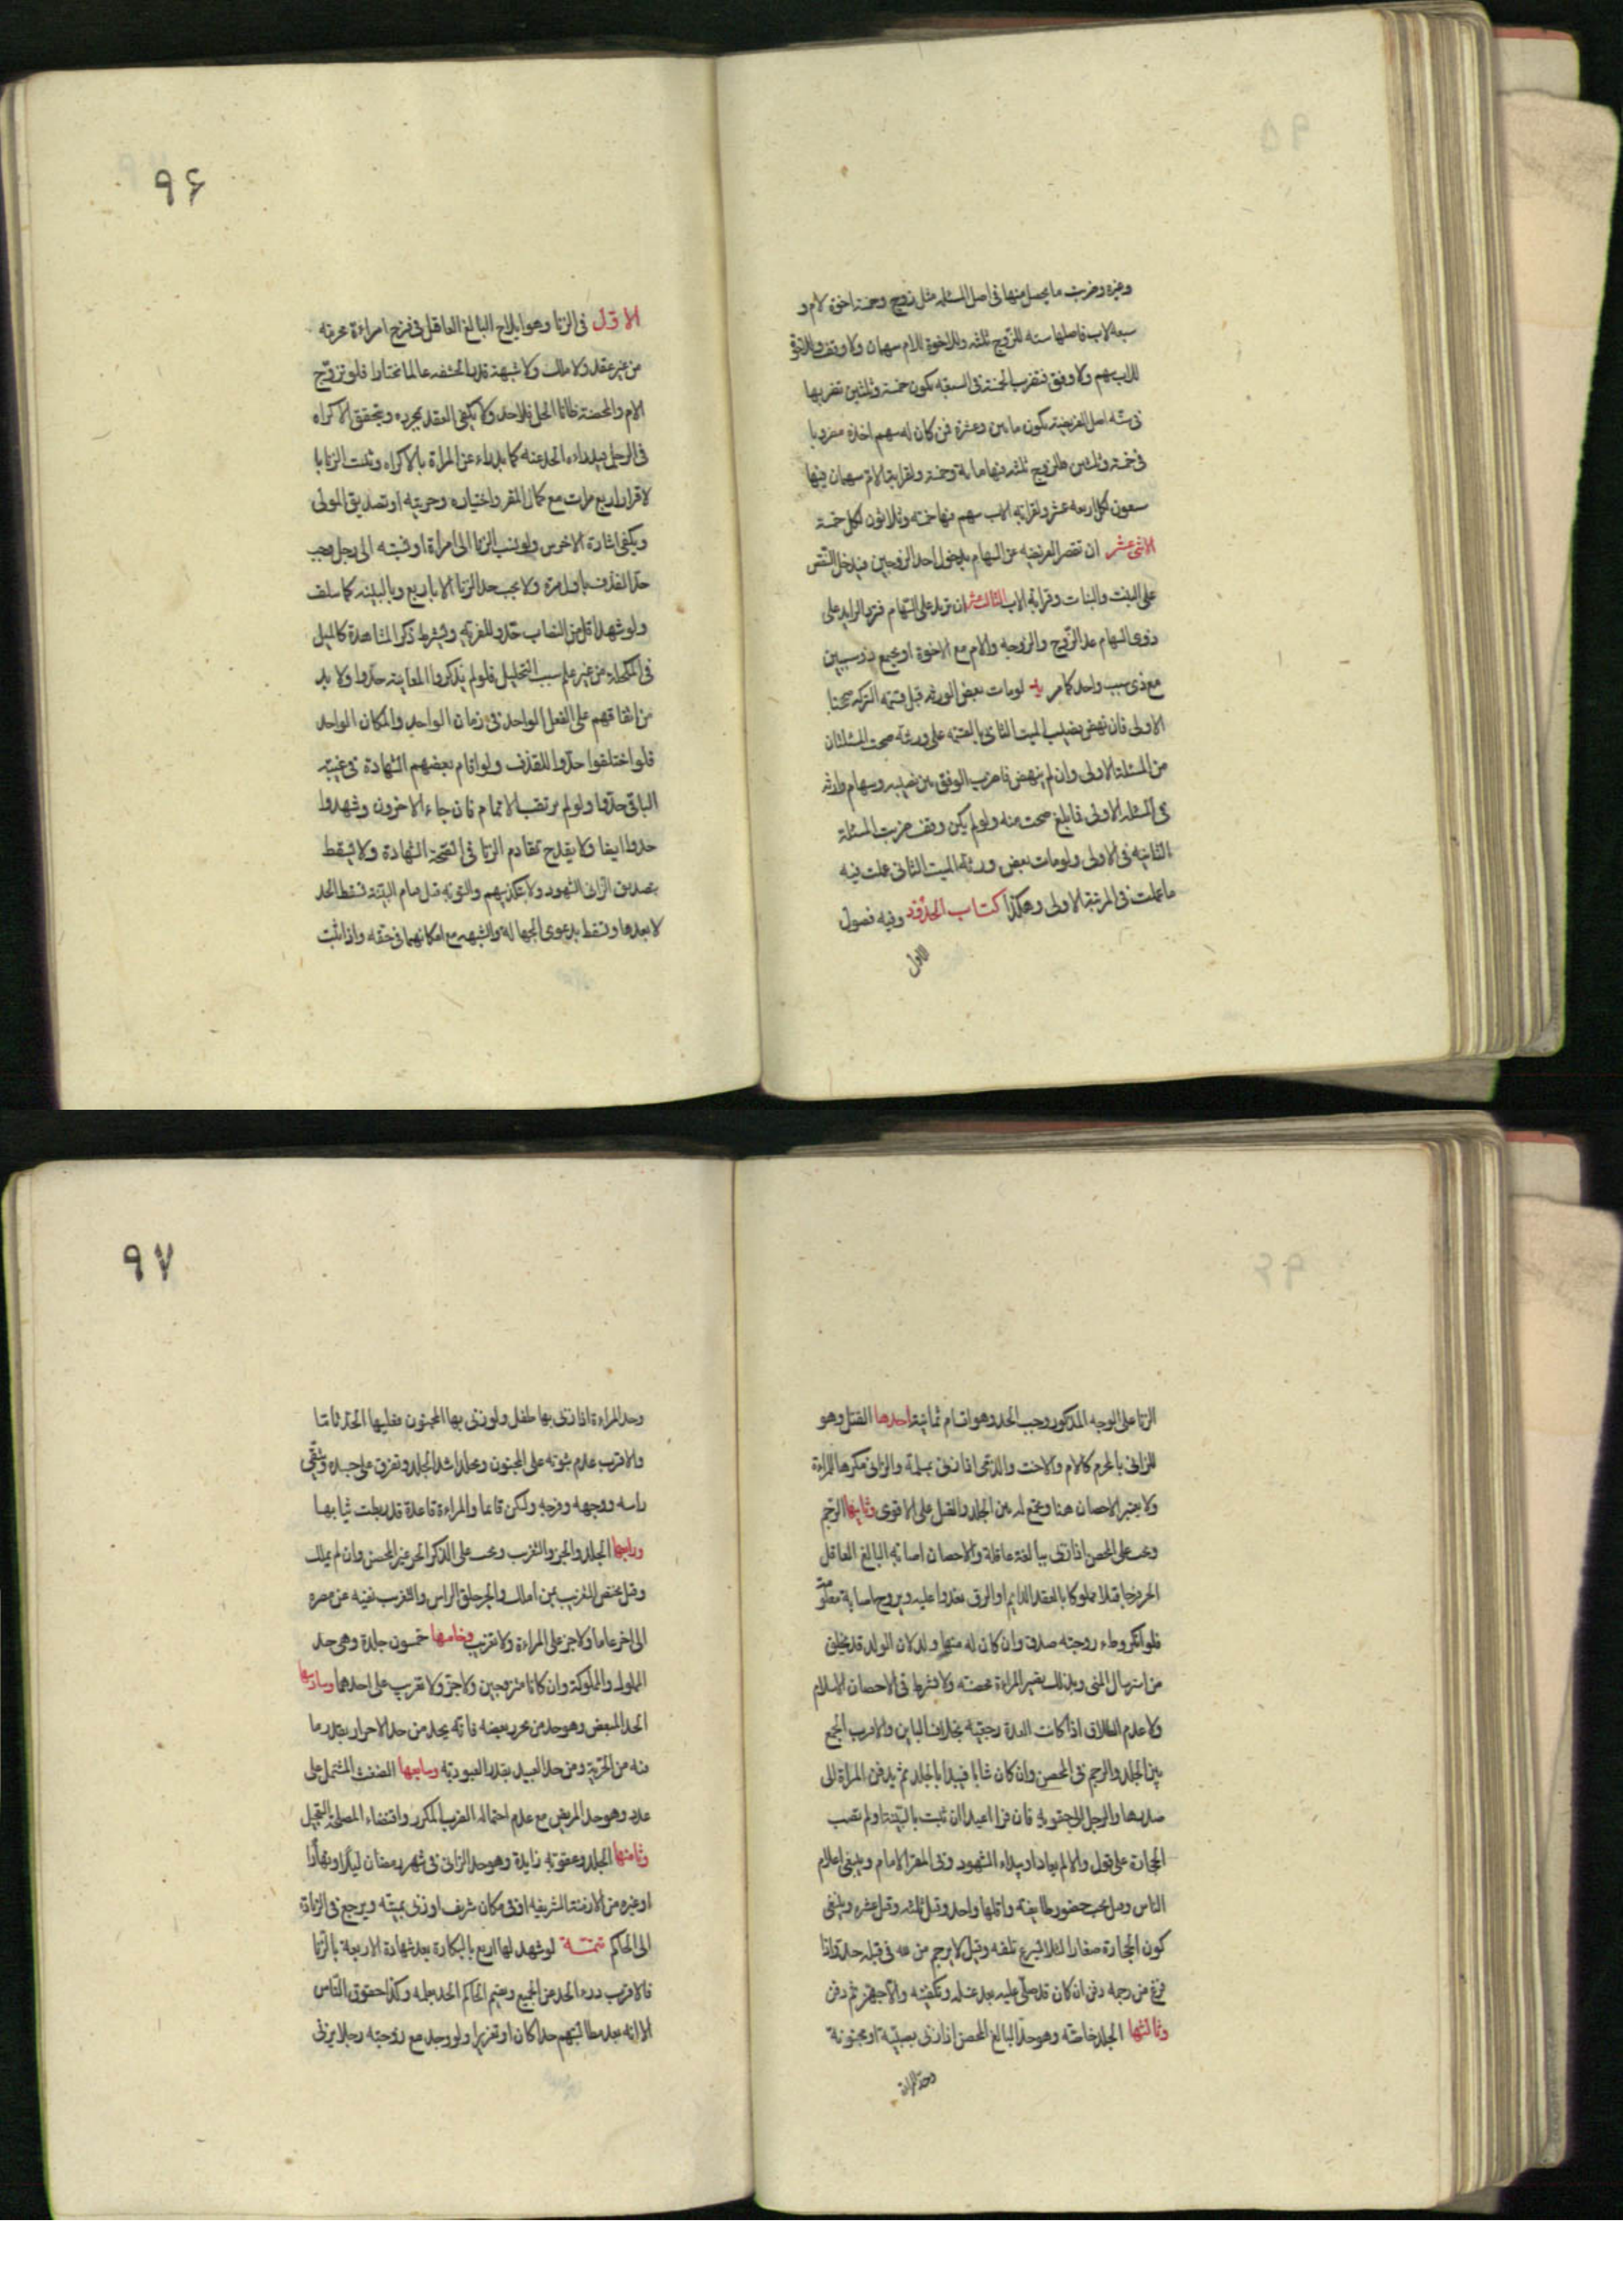 وغيره وضربت ما يحصل منها فى اصل المسئلة مثل زوج وخمسة اخوة لام و
سبعه لاب فاصلها سته للزوج ثلثه وللاخوة للام سهمان ولا وفق وللاخوة
للاب سهم ولا وفق فتضرب الخمسة فى السبعه تكون خمسة وثلثين تضربها
فى سته اصل الفريضة تكون مأتين وعشرة فمن كان له سهم اخذه مضروبا
فى خمسة وثلثين فللزوج ثلثه منها مائة وخمسة ولقرابة الام سهمان فيها
سبعون لكل اربعه عشر ولقرابة الاب سهم منها خمسه وثلاثون لكل خمسة
الاثنى عشر ان تقصر الفريضه عن السهام بدخول احد الزوجين فيدخل النقص
على البنت والبنات وقرابة الاب الثالث عشر ان تزيد على السهام فترد الزايد على
ذوى السهام عدا الزوج والزوجه والام مع الاخوة او يجتمع ذو سببين
مع ذى سبب واحد كما مر يد لو مات بعض الورثه قبل قسمة التركه صححنا
الاولى فان نهض نصيب الميت الثانى بالقسمة على ورثته صحت المسئلتان
من المسئلة الاولى وان لم ينهض فاضرب الوفق بين نصيبه وسهام وارثه
فى المسئله الاولى فما بلغ صحت منه ولو لم يكن وفق ضربت المسئلة
الثانيه فى الاولى ولو مات بعض ورثة الميت الثانى عملت فيه
ما عملت فى المرتبة الاولى وهكذا كتاب الحدود وفيه فصول
الاول
٩۶
الاول فى الزنا وهو ايلاج البالغ العاقل فى فرج امراءة محرمة
من غير عقد ولا ملك ولا شبهة قدر الحشفه عالما مختارا فلو تزوج
الام والمحصنة ظانا الحل فلا حد ولا يكفى العقد بمجرده ويتحقق الاكراه
فى الرجل فيدراء الحد عنه كما يدراء عن المراة بالاكراه ويثبت الزنا با
لاقرار اربع مرات مع كمال المقر واختياره وحريته او تصديق المولى
ويكفى اشارة الاخرس ولو نسب الزنا الى امراة او نسبته الى رجل وجب
حد القذف باول مرة ولا يجب حد الزنا الا باربع وبالبينه كما سلف
ولو شهد اقل من النصاب حدوا للفرية ويشترط ذكر المشاهدة كالميل
فى المكحلة من غير علم سبب التحليل فلو لم يذكروا المعاينة حدوا ولا بد
من اتفاقهم على الفعل الواحد فى زمان الواحد والمكان الواحد
فلو اختلفوا حدوا للقذف ولو اقام بعضهم الشهادة فى غيبة
الباقى حدوا ولو لم يرتقب الاتمام فان جاء الاخرون وشهدوا
حدوا ايضا ولا يقدح تقادم الزنا فى الشهادة ولا يسقط
بتصديق الزانى الشهود ولا بتكذيبهم والتوبة قبل قيام البينة تسقط الحد
لا بعدها وتسقط بدعوى الجهالة والشبهه مع امكانهما فى حقه واذا ثبت
الزنا على الوجه المذكور وجب الحد وهو اقسام ثمانية احدها القتل وهو
للزانى بالمحرم كالام والاخت والذمى اذا زنى بمسلمة والزانى مكرها للمراءة
ولا يعتبر الاحصان هنا ويجمع له بين الجلد والقتل على الاقوى وثانيها الرجم
ويجب على المحصن اذا زنى ببالغة عاقلة والاحصان اصابة البالغ العاقل
الحر فرجا قبلا مملوكا بالعقد الدايم او الرق يغدوا عليه ويروح اصابة معلومة
فلو انكر وطء زوجته صدق وان كان له منها ولد لان الولد قد يخلق
من استرسال المنى وبذلك تصير المراءة محصنة ولا يشترط فى الاحصان الاسلام
ولا عدم الطلاق اذا كانت العدة رجعيه بخلاف الباين والاقرب الجمع
بين الجلد والرجم فى المحصن وان كان شابا فيبدا بالجلد ثم يدفن المراة الى
صدرها والرجل الى حقويه فان فرا اعيدا ان ثبت بالبينة او لم تصب
الحجارة على قول والا لم يعادا ويبداء الشهود وفى المقر الامام وينبغى اعلام
الناس وقيل يجب حضور طايفة واقلها واحد وقيل ثلثه وقيل عشره وينبغى
كون الحجارة صغارا لئلا يسرع تلفه وقيل لا يرجم من لله فى قبله حد واذا
فرغ من رجمه دفن ان كان قد صلى عليه بعد غسله وتكفينه والا جهز ثم دفن
وثالثها الجلد خاصة وهو حد البالغ المحصن اذا زنى بصبية او مجنونة
وحد المراءة
٩٧
وحد المراءة اذا زنى بها طفل ولو زنى بها المجنون فعليها الحد تاما
والاقرب عدم ثبوته على المجنون ويجلد اشد الجلد ويفرق على جسده ويتقى
راسه ووجهه وفرجه وليكن قائما والمراءة قاعدة قد ربطت ثيابها
ورابعها الجلد والجز والتغريب ويجب على الذكر الحر غير المحصن وان لم يملك
وقيل يختص التغريب بمن املك والجز حلق الراس والتغريب نفيه عن مصره
الى اخر عاما ولا جز على المراءة ولا تغريب وخامسها خمسون جلدة وهى حد
المملوك والمملوكة وان كانا متزوجين ولا جز ولا تغريب على احدهما وسادسها
الحد المبعض وهو حد من تحرر بعضه فانه يحد من حد الاحرار بقدر ما
فيه من الحرية ومن حد العبيد بقدر العبوديه وسابعها الضغث المشتمل على
عدد وهو حد المريض مع عدم احتماله الضرب المكرر واقتضاء المصلحة التعجيل
وثامنها الجلد وعقوبة زايدة وهو حد الزانى فى شهر رمضان ليلا او نهارا
او غيره من الازمنة الشريفه او فى مكان شريف او زنى بميتة ويرجع فى الزيادة
الى الحاكم تتمـة لو شهد لها اربع بالبكارة بعد شهادة الاربعة بالزنا
فالاقرب درء الحد عن الجميع ويقيم الحاكم الحد بعلمه وكذا حقوق الناس
الا انه بعد مطالبتهم حدا كان او تعزيرا ولو وجد مع زوجته رجلا يزنى